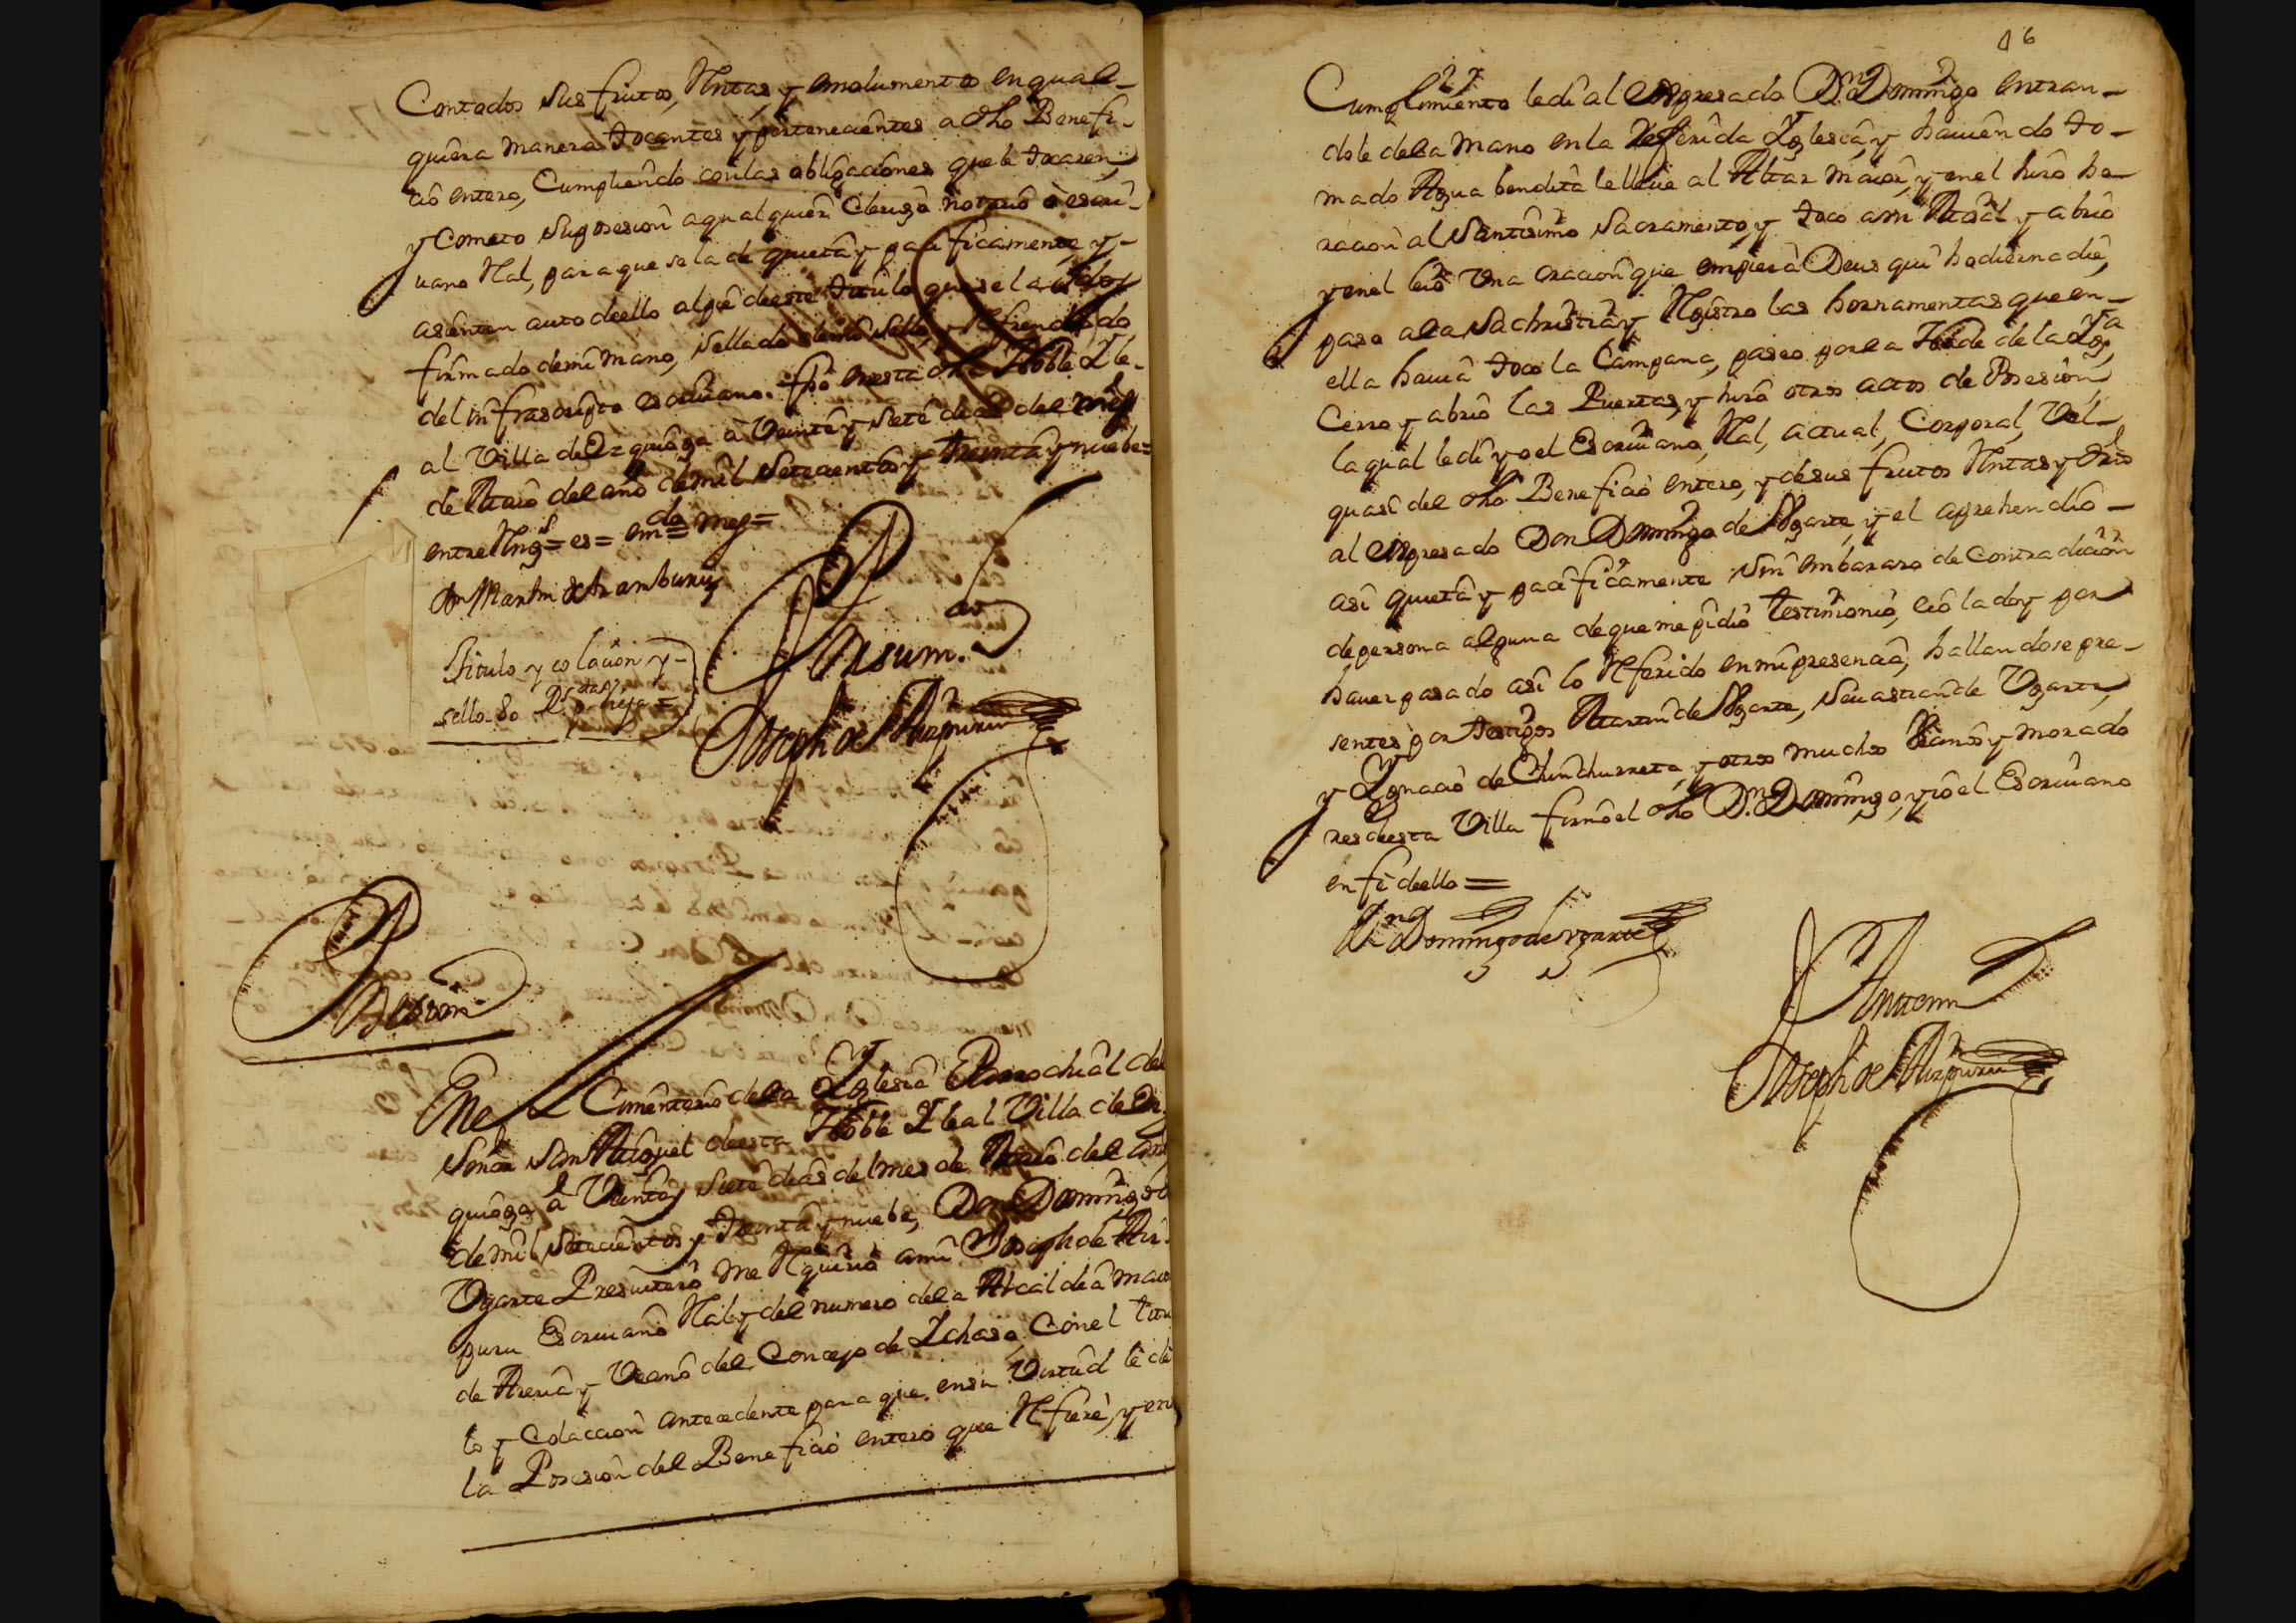 Contodos sus frutos, Rntas y emolumentos en qual-
quiera manera tocantes y pertenecientes a dho Benefi-
cio entero, Cumpliendo con las obligaciones que le tocaren,
y Cometo su posesion a qual quier Clerigo notario o escri-
uano Rl, para que se la de quieta y pacificamente, y
asienten auto de ello al pie de este titulo que se la doy
firmado de mi mano, sellado de mi sello, y Refrendado
del infrascripto escriuano. fho en esta dha Noble Y le-
al Villa de Ezquioga a Veinte y siete dias del mes
de Maio del año de mil Setecientos y treinta y nuebe=
entre Rng.s = es = em.do = mes =
Dn Martin de Aramburu
Titulo y colacion y
sello 80 Rs
Por su m.do
Joseph de Aizpuru
Posesion
En el Cimenterio de la Yglesia Parrochial del
Señor San Miguel de esta Noble Y leal Villa de Ez-
quioga a Veinte y siete dias del mes de Maio del año
de mil Setecientos y treinta y nuebe, Don Domingo de
Vgarte Presuitero me Rquirio a mi Joseph de Aiz-
puru Escriuano Rl y del numero de la Alcaldia maior
de Areria y Vecino del Concejo de Ychaso, Con el titu-
lo y Colaccion antecedente para que en su Virtud le de
la Posesion del Beneficio entero que Rfiere, y en
16
Cumplimiento le di al Expresado Dn Domingo entran-
dole de la mano en la Referida Yglesia, y hauiendo to-
mado Agua bendita le lleue al Altar Maior, y en el hizo ho-
racion al Santisimo Sacramento, y toco a mi Misal y abrio
y en el leio Vna oracion que empieza Deus qui hodierna die,
paso a la Sachristia y Rgistro las hornamentas que en
ella hauia toco la Campana, paseo por la Nabe de la Ygla
Cerro y abrio las Puertas, y hizo otros actos de Posesion,
la qual le di yo el Escriuano, Rl, actual, Corporal, Vel
quasi del dho Beneficio entero, y de sus frutos Rntas y dros
al Expresado Don Domingo de Vgarte, y el aprehendio
asi quieta y pacificamente sin embarazo de contradicion
de persona alguna de que me pidio testimonio, eio la doy por
hauer pasado asi lo Rferido en mi presencia, hallandose pre-
sentes por testigos Martin de Vgarte, Seuastian de Vgarte,
y Ygnacio de Chinchurreta, y otros muchos Vecinos y morado
res de esta Villa firmo el dho Dn Domingo, y io el Escriuano
en fe de ello =
Dn Domingo de Vgarte
Ante mi
Joseph de Aizpuru